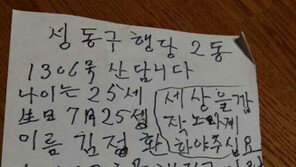 성동구 행당 2동
1306호 산담니다
나이는 25세
보므 7月 25셍
이름 김정환
세상을깜
작노라게
한야주십요